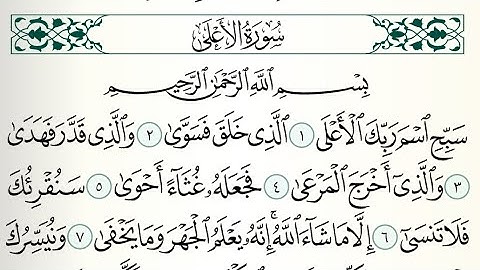 سُورَةُ الأَعْلَى
بِسْمِ اللَّهِ الرَّحْمَٰنِ الرَّحِيمِ
سَبِّحِ ٱسْمَ رَبِّكَ ٱلْأَعْلَى ١ ٱلَّذِى خَلَقَ فَسَوَّىٰ ٢ وَٱلَّذِى قَدَّرَ فَهَدَىٰ
٣ وَٱلَّذِىٓ أَخْرَجَ ٱلْمَرْعَىٰ ٤ فَجَعَلَهُۥ غُثَآءً أَحْوَىٰ ٥ سَنُقْرِئُكَ
فَلَا تَنسَىٰٓ ٦ إِلَّا مَا شَآءَ ٱللَّهُ ۚ إِنَّهُۥ يَعْلَمُ ٱلْجَهْرَ وَمَا يَخْفَىٰ ٧ وَنُيَسِّرُكَ